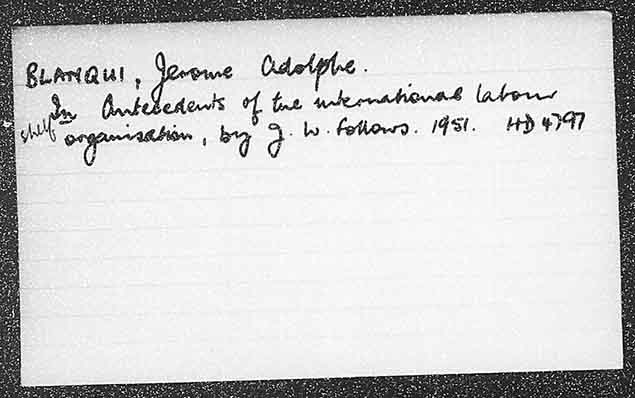 BLANQUI, Jerome Adolphe.
In Antecedents of the international labour
shelf organisation, by J. W. Follows. 1951. HD 4797